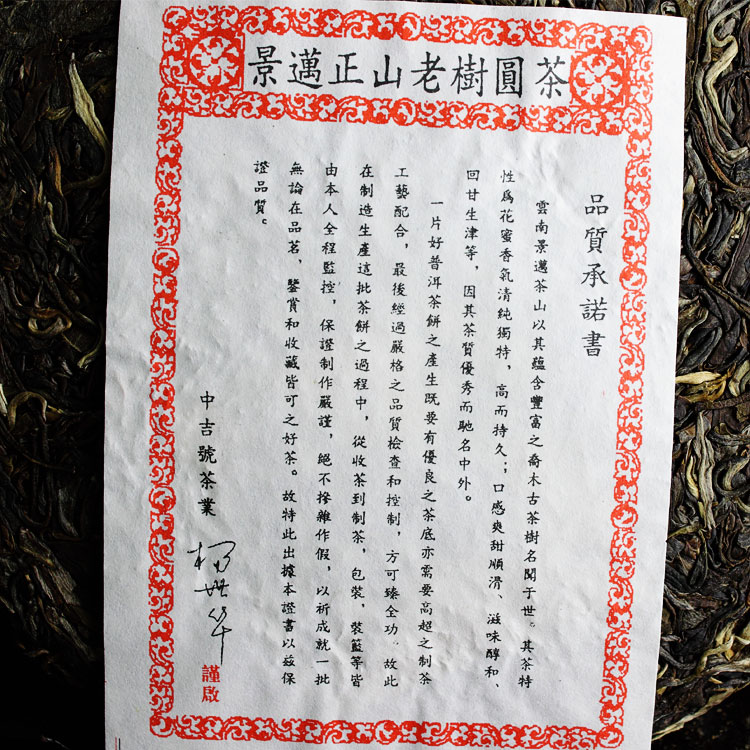 景邁正山老樹圓茶
品質承諾書
雲南景邁茶山以其蘊含豐富之喬木古茶樹名聞于世。其茶特
性爲花蜜香氣清純獨特,高而持久;口感爽甜順滑、滋味醇和、
回甘生津等,因其茶質優秀而馳名中外。
一片好普洱茶餅之產生既要有優良之茶底亦需要高超之制茶
工藝配合,最後經過嚴格之品質檢查和控制,方可臻全功。故此
在制造生產這批茶餅之過程中,從收茶到制茶,包裝,裝籃等皆
由本人全程監控,保證制作嚴謹,絕不摻雜作假,以祈成就一批
無論在品茗,鑒賞和收藏皆可之好茶。故特此出據本證書以茲保
證品質。
中吉號茶業
謹啟